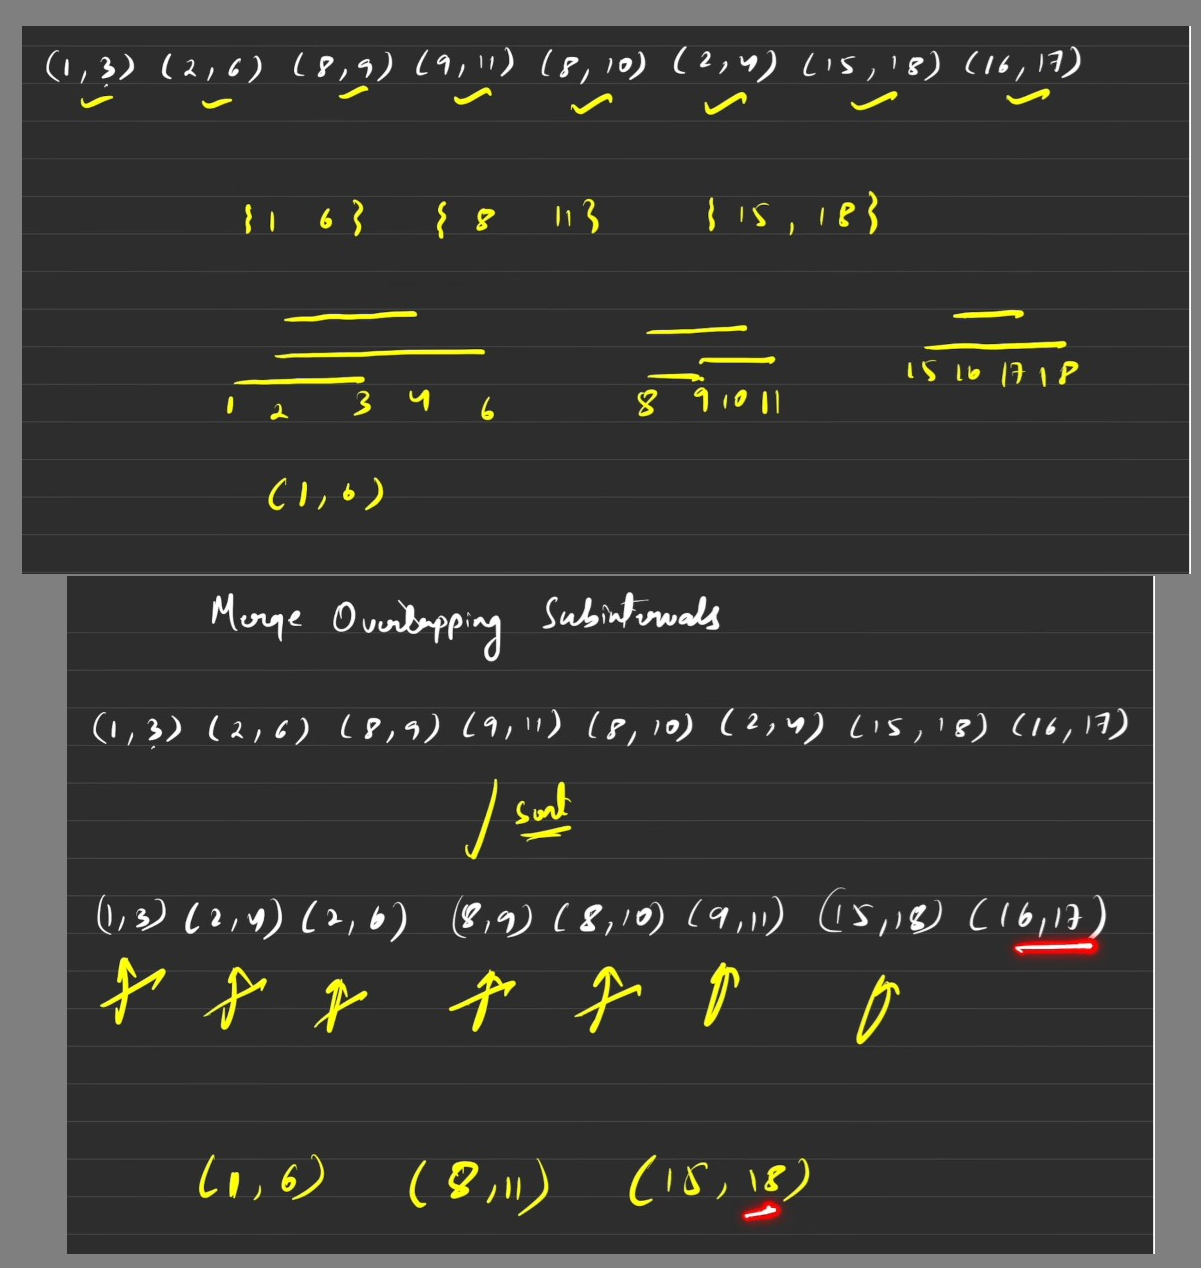 (1,3) (2,6) (8,9) (9,11) (8,10) (2,4) (15,18) (16,17)
{1 6} {8 11} {15,18}
1 2 3 4 6 8 9 10 11 15 16 17 18
(1,6)
Merge Overlapping Subintervals
(1,3) (2,6) (8,9) (9,11) (8,10) (2,4) (15,18) (16,17)
sort
(1,3) (2,4) (2,6) (8,9) (8,10) (9,11) (15,18) (16,17)
(1,6) (8,11) (15,18)